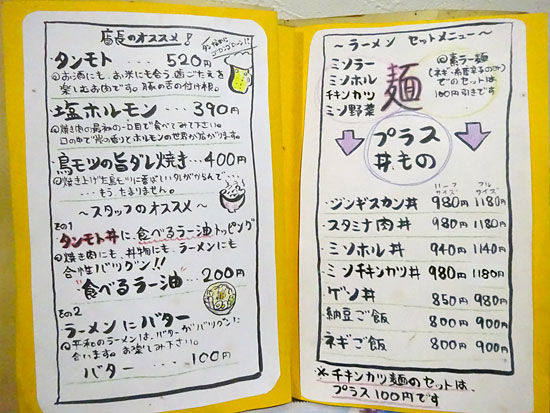 店長のオススメ!
タンモト ・・・ 520円
お酒にも、お米にも合う歯ごたえを
楽しむお肉です。豚の舌の付け根。
塩ホルモン ・・・ 390円
焼き肉の最初の一口目で食べてみて下さい。
口の中で炭の香りとホルモンの世界が広がります。
鳥モツの旨ダレ焼き・・・400円
・・・もう、たまりません。
～スタッフのオススメ～
その1
タンモト丼に食べるラー油トッピング
焼き肉にも、丼物にも、ラーメンにも
合性バツグン!!
"食べるラー油" ・・・ 200円
その2
ラーメンにバター
平和のラーメンは、バターがバツグンに
合います。お楽しみ下さい。
バター ・・・・ 100円
～ラーメン セットメニュー～
ミソラー
ミソホル
チキンカツ
ミソ野菜
麺
素ラー麺
でのセットは
100円引きです
プラス
丼もの
ハーフサイズ フルサイズ
ジンギスカン丼 980円 1180円
スタミナ肉丼 980円 1180円
ミソホル丼 940円 1140円
ミソチキンカツ丼 980円 1180円
ゲソ丼 850円 980円
納豆ご飯 800円 900円
ネギご飯 800円 900円
※チキンカツ麺のセットは、
プラス100円です